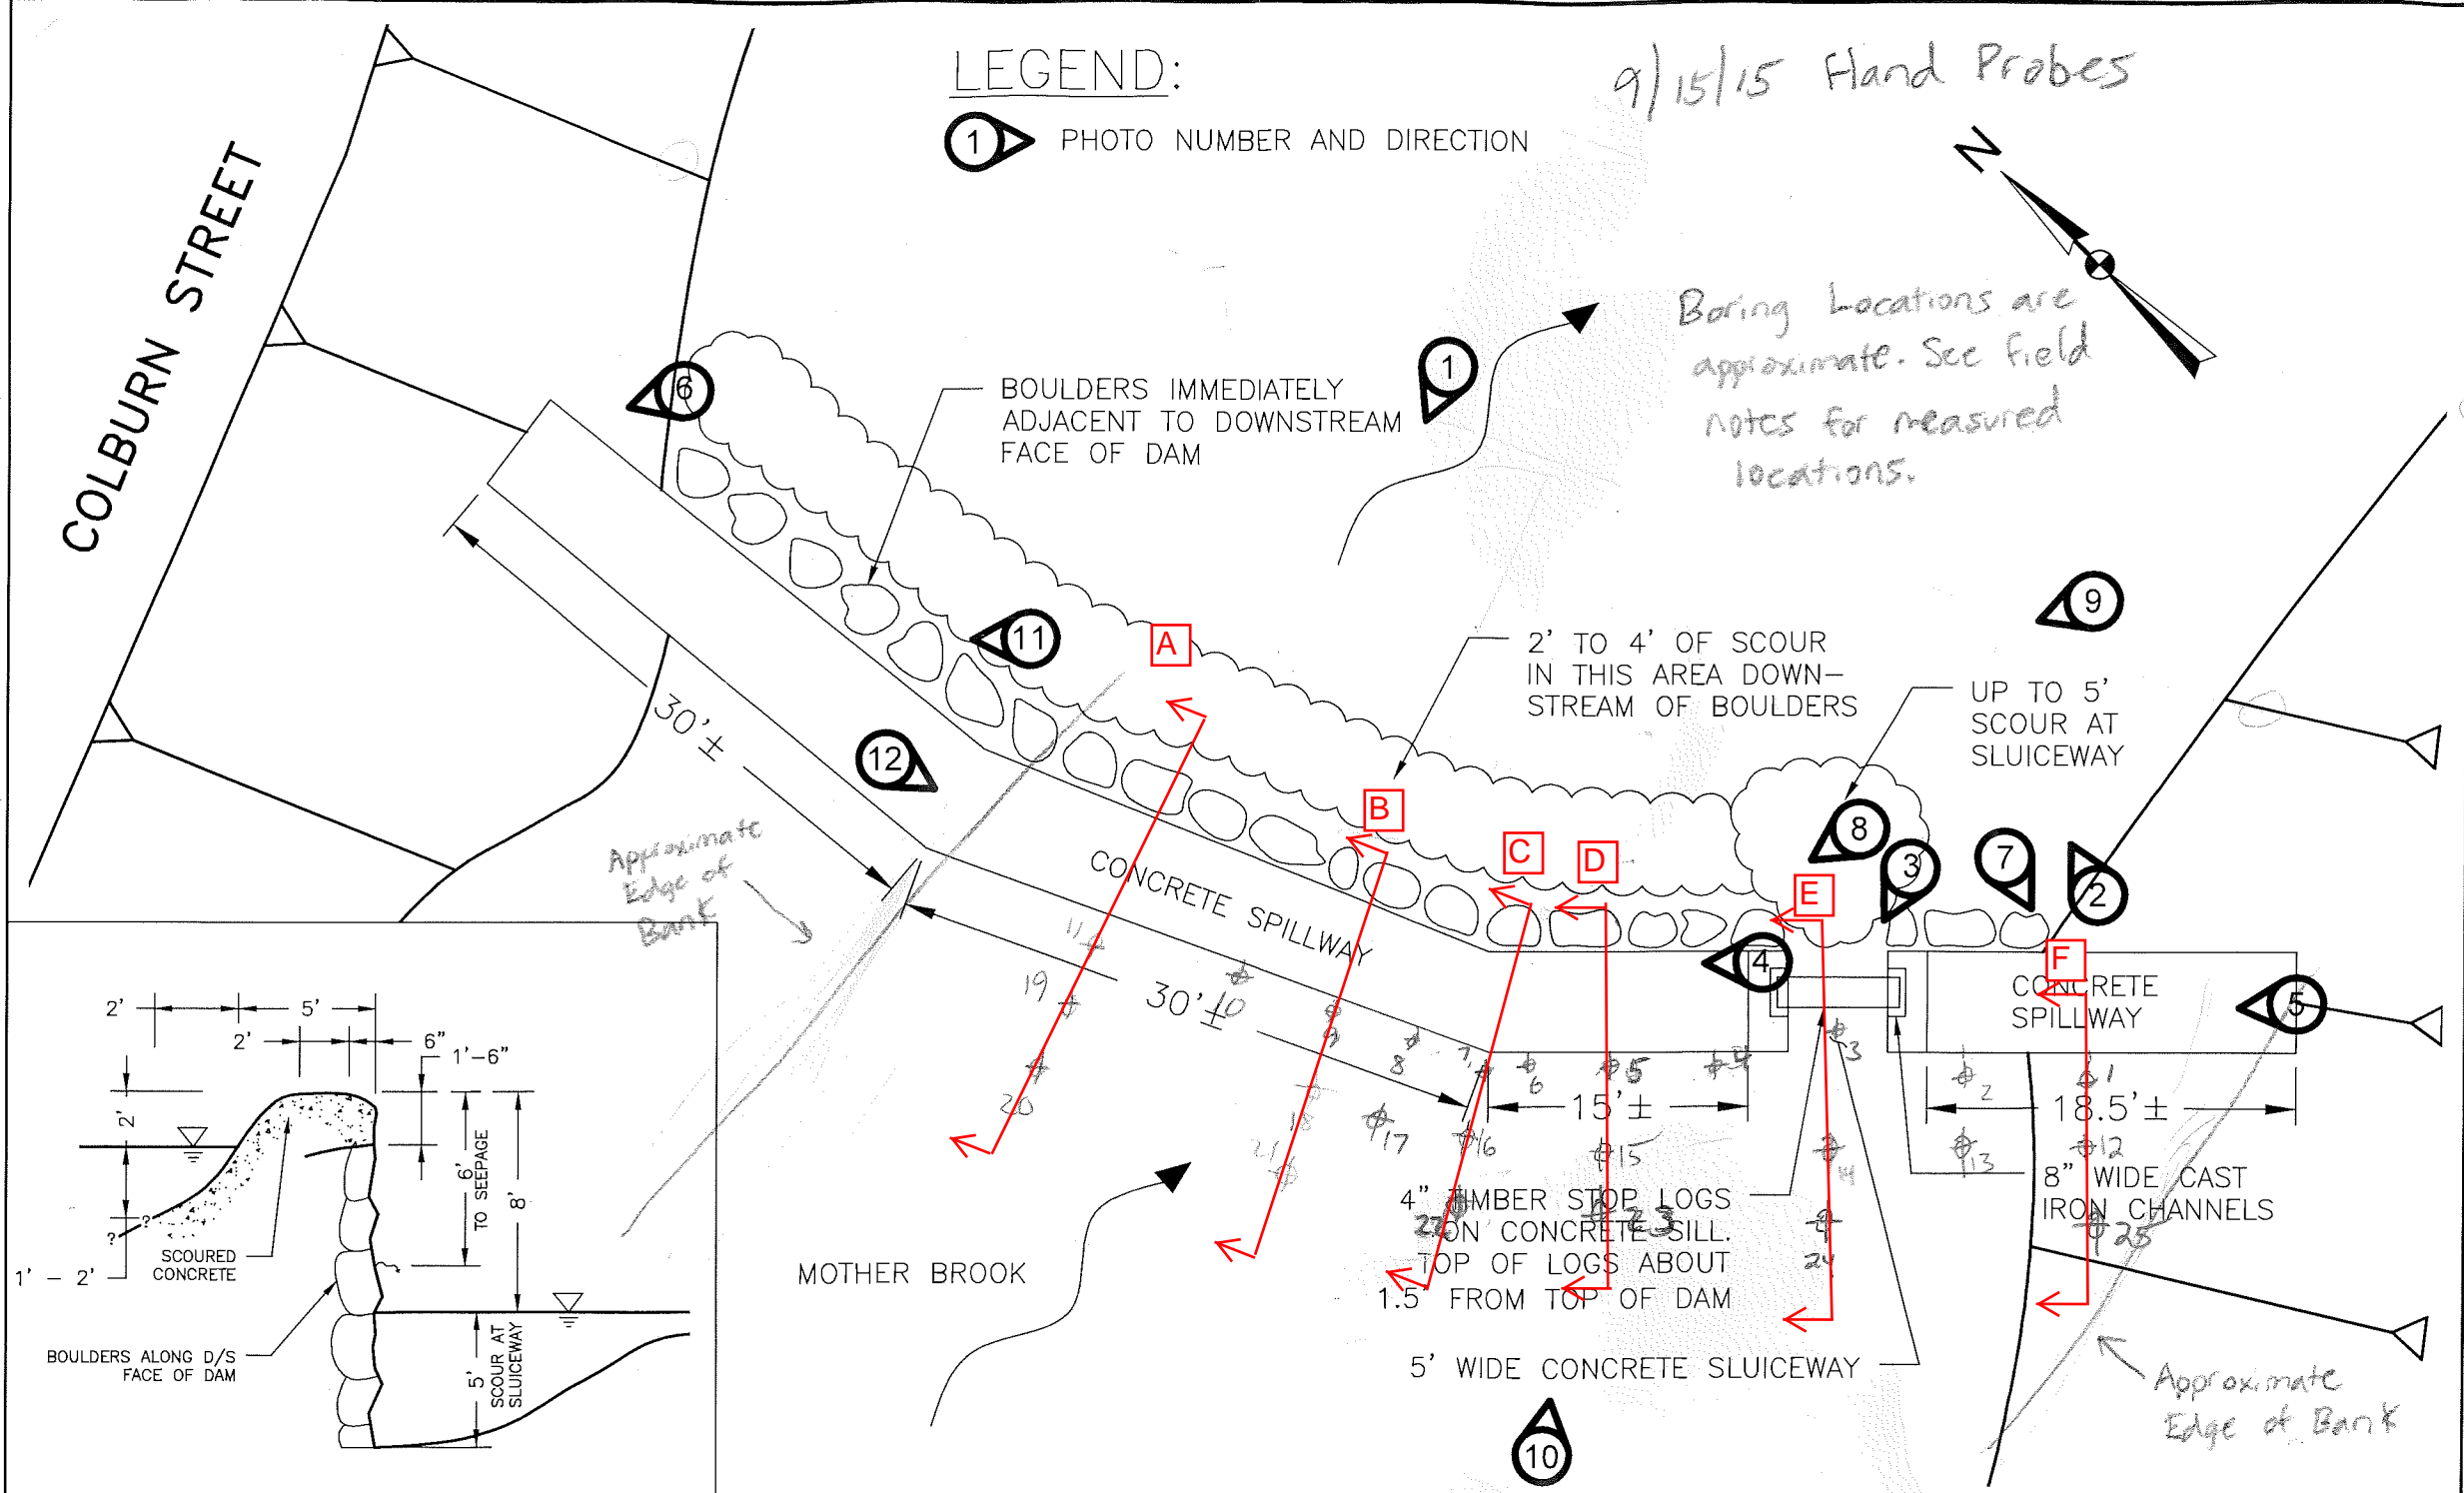 LEGEND:
1 PHOTO NUMBER AND DIRECTION
9/15/15 Hand Probes
N
COLBURN STREET
Boring Locations are
approximate. See field
notes for measured
locations.
BOULDERS IMMEDIATELY
ADJACENT TO DOWNSTREAM
FACE OF DAM
1
6
9
11
A
2' TO 4' OF SCOUR
IN THIS AREA DOWN-
STREAM OF BOULDERS
UP TO 5'
SCOUR AT
SLUICEWAY
30'±
12
B
C
D
E
F
8
3
7
2
4
5
Approximate
Edge of
Bank
CONCRETE SPILLWAY
CONCRETE
SPILLWAY
30'±
15'±
18.5'±
11
19
20
10
9
8
7
6
5
4
3
2
1
18
21
17
16
15
14
13
12
22
23
24
25
4" TIMBER STOP LOGS
ON CONCRETE SILL.
TOP OF LOGS ABOUT
1.5' FROM TOP OF DAM
8" WIDE CAST
IRON CHANNELS
5' WIDE CONCRETE SLUICEWAY
MOTHER BROOK
10
Approximate
Edge of Bank
2'
5'
2'
6"
1'-6"
2'
6'
TO SEEPAGE
8'
?
?
1' - 2'
SCOURED
CONCRETE
BOULDERS ALONG D/S
FACE OF DAM
5'
SCOUR AT
SLUICEWAY